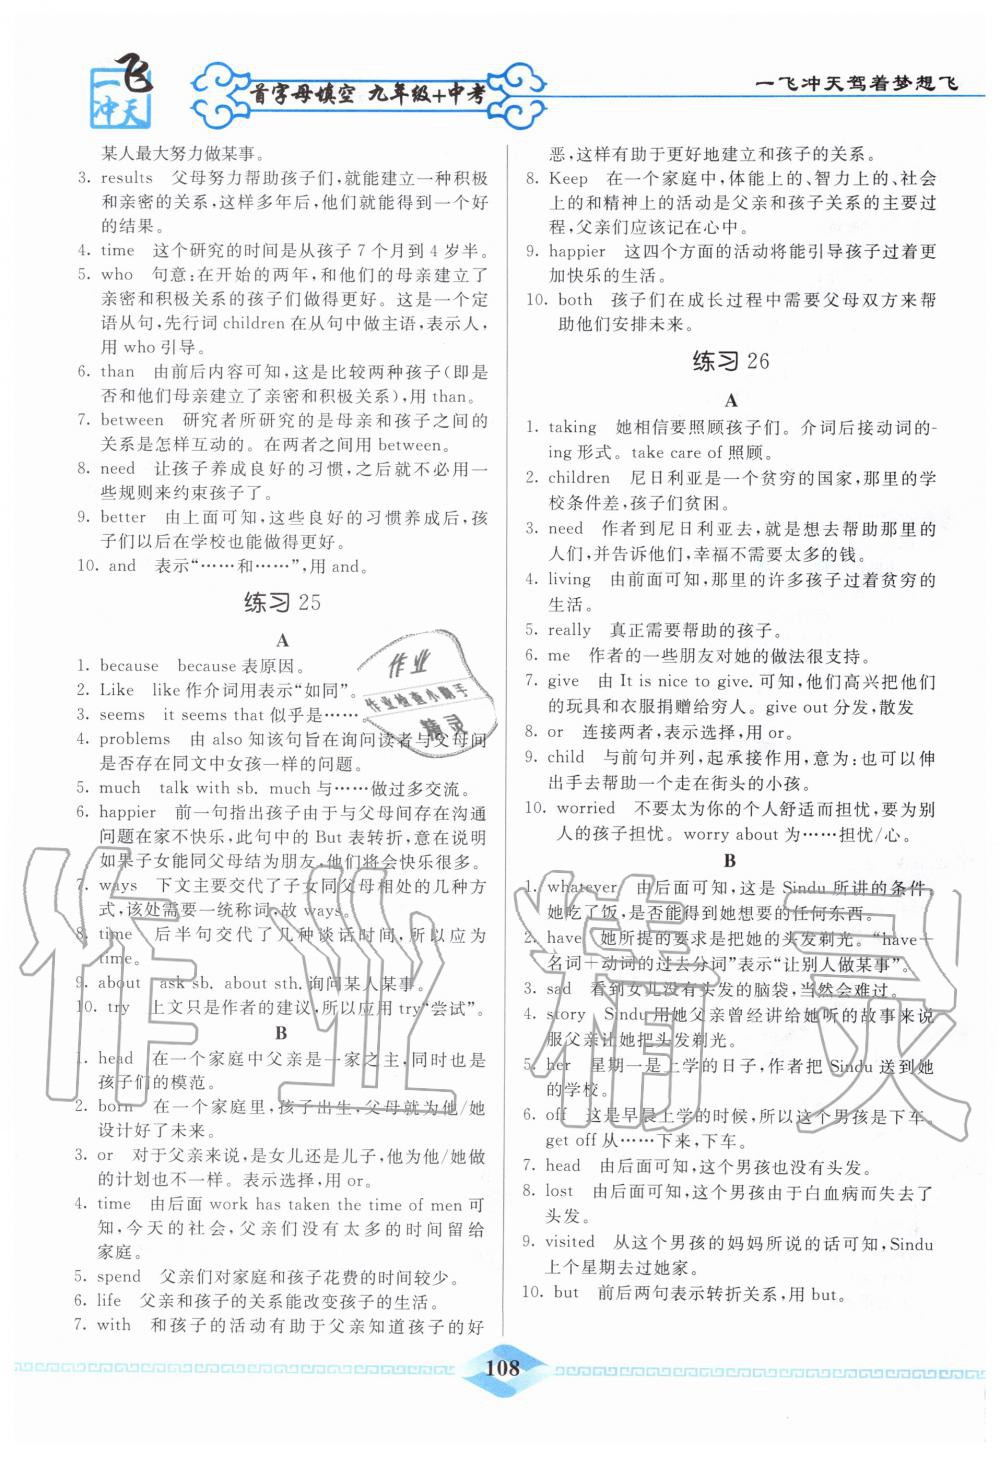 一飞冲天
首字母填空 九年级+中考
一飞冲天驾着梦想飞
某人最大努力做某事。
3. results 父母努力帮助孩子们,就能建立一种积极
和亲密的关系,这样多年后,他们就能得到一个好
的结果。
4. time 这个研究的时间是从孩子 7 个月到 4 岁半。
5. who 句意:在开始的两年,和他们的母亲建立了
亲密和积极关系的孩子们做得更好。这是一个定
语从句,先行词 children 在从句中做主语,表示人,
用 who 引导。
6. than 由前后内容可知,这是比较两种孩子(即是
否和他们母亲建立了亲密和积极关系),用 than。
7. between 研究者所研究的是母亲和孩子之间的
关系是怎样互动的。在两者之间用 between。
8. need 让孩子养成良好的习惯,之后就不必用一
些规则来约束孩子了。
9. better 由上面可知,这些良好的习惯养成后,孩
子们以后在学校也能做得更好。
10. and 表示“……和……”,用 and。
练习 25
A
1. because because 表原因。
2. Like like 作介词用表示“如同”。
3. seems it seems that 似乎是……
4. problems 由 also 知该句旨在询问读者与父母间
是否存在同文中女孩一样的问题。
5. much talk with sb. much 与……做过多交流。
6. happier 前一句指出孩子由于与父母间存在沟通
问题在家不快乐,此句中的 But 表转折,意在说明
如果子女能同父母结为朋友,他们将会快乐很多。
7. ways 下文主要交代了子女同父母相处的几种方
式,该处需要一统称词,故 ways。
8. time 后半句交代了几种谈话时间,所以应为
time。
9. about ask sb. about sth. 询问某人某事。
10. try 上文只是作者的建议,所以应用 try“尝试”。
B
1. head 在一个家庭中父亲是一家之主,同时也是
孩子们的模范。
2. born 在一个家庭里,孩子出生,父母就为他/她
设计好了未来。
3. or 对于父亲来说,是女儿还是儿子,他为他/她做
的计划也不一样。表示选择,用 or。
4. time 由后面 work has taken the time of men 可
知,今天的社会,父亲们没有太多的时间留给
家庭。
5. spend 父亲们对家庭和孩子花费的时间较少。
6. life 父亲和孩子的关系能改变孩子的生活。
7. with 和孩子的活动有助于父亲知道孩子的好
恶,这样有助于更好地建立和孩子的关系。
8. Keep 在一个家庭中,体能上的、智力上的、社会
上的和精神上的活动是父亲和孩子关系的主要过
程,父亲们应该记在心中。
9. happier 这四个方面的活动将能引导孩子过着更
加快乐的生活。
10. both 孩子们在成长过程中需要父母双方来帮
助他们安排未来。
练习 26
A
1. taking 她相信要照顾孩子们。介词后接动词的-
ing 形式。take care of 照顾。
2. children 尼日利亚是一个贫穷的国家,那里的学
校条件差,孩子们贫困。
3. need 作者到尼日利亚去,就是想去帮助那里的
人们,并告诉他们,幸福不需要太多的钱。
4. living 由前面可知,那里的许多孩子过着贫穷的
生活。
5. really 真正需要帮助的孩子。
6. me 作者的一些朋友对她的做法很支持。
7. give 由 It is nice to give. 可知,他们高兴把他们
的玩具和衣服捐赠给穷人。give out 分发,散发
8. or 连接两者,表示选择,用 or。
9. child 与前句并列,起承接作用,意为:可以伸
出手去帮助一个走在街头的小孩。
10. worried 不要太为你的个人舒适而担忧,要为别
人的孩子担忧。worry about 为……担忧/心。
B
1. whatever 由后面可知,这是 Sindu 所讲的条件。
她吃了饭,是否能得到她想要的任何东西。
2. have 她所提的要求是把她的头发剃光。“have+
名词+动词的过去分词”表示“让别人做某事”。
3. sad 看到女儿没有头发的脑袋,当然会难过。
4. story Sindu 用她父亲曾经讲给她听的故事来说
服父亲让她把头发剃光。
5. her 星期一是上学的日子,作者把 Sindu 送到她
的学校。
6. off 这是早晨上学的时候,所以这个男孩是下车。
get off 从……下来,下车。
7. head 由后面可知,这个男孩也没有头发。
8. lost 由后面可知,这个男孩由于白血病而失去了
头发。
9. visited 从这个男孩的妈妈所说的话可知,Sindu
上个星期去过她家。
10. but 前后两句表示转折关系,用 but。
108
作业
作业检查小助手
精灵
作业精灵